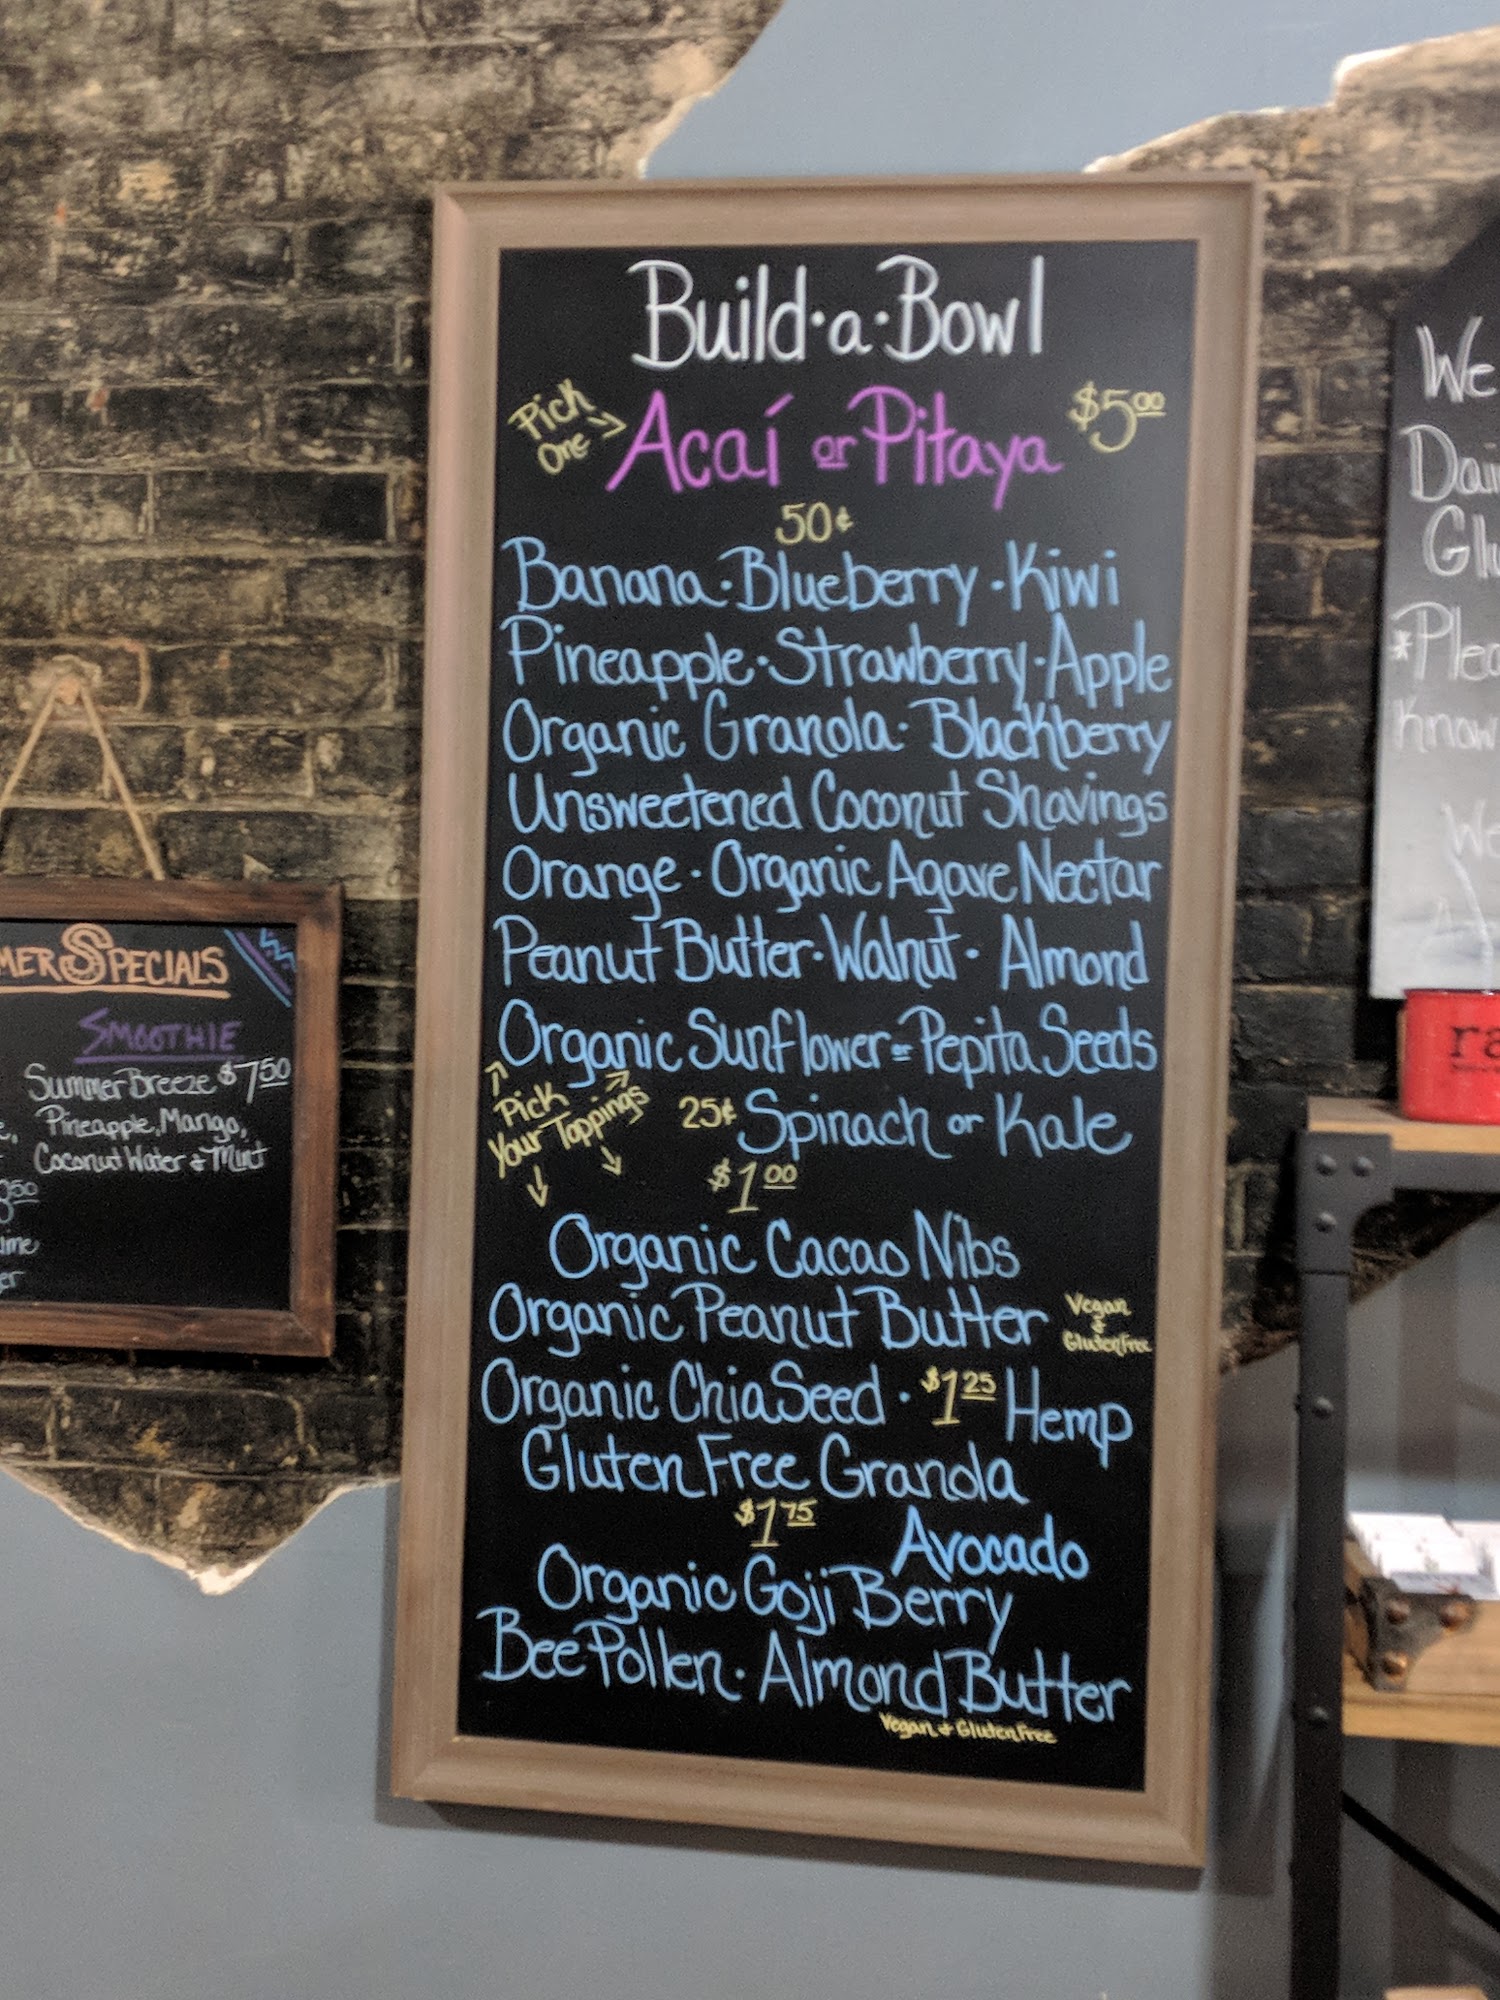 Build·a·Bowl
Pick One → Acaí or Pitaya $5.00
50¢
Banana · Blueberry · Kiwi
Pineapple · Strawberry · Apple
Organic Granola · Blackberry
Unsweetened Coconut Shavings
Orange · Organic Agave Nectar
Peanut Butter · Walnut · Almond
Organic Sunflower or Pepita Seeds
Pick
Your Toppings
25¢ Spinach or Kale
$1.00
Organic Cacao Nibs
Organic Peanut Butter Vegan & Gluten Free
Organic Chia Seed · $1.25 Hemp
Gluten Free Granola
$1.75 Avocado
Organic Goji Berry
Bee Pollen · Almond Butter
Vegan & Gluten Free
MER SPECIALS
SMOOTHIE
Summer Breeze $7.50
Pineapple, Mango,
Coconut Water & Mint
We
Dai
Glu
*Plea
Know
We
ra